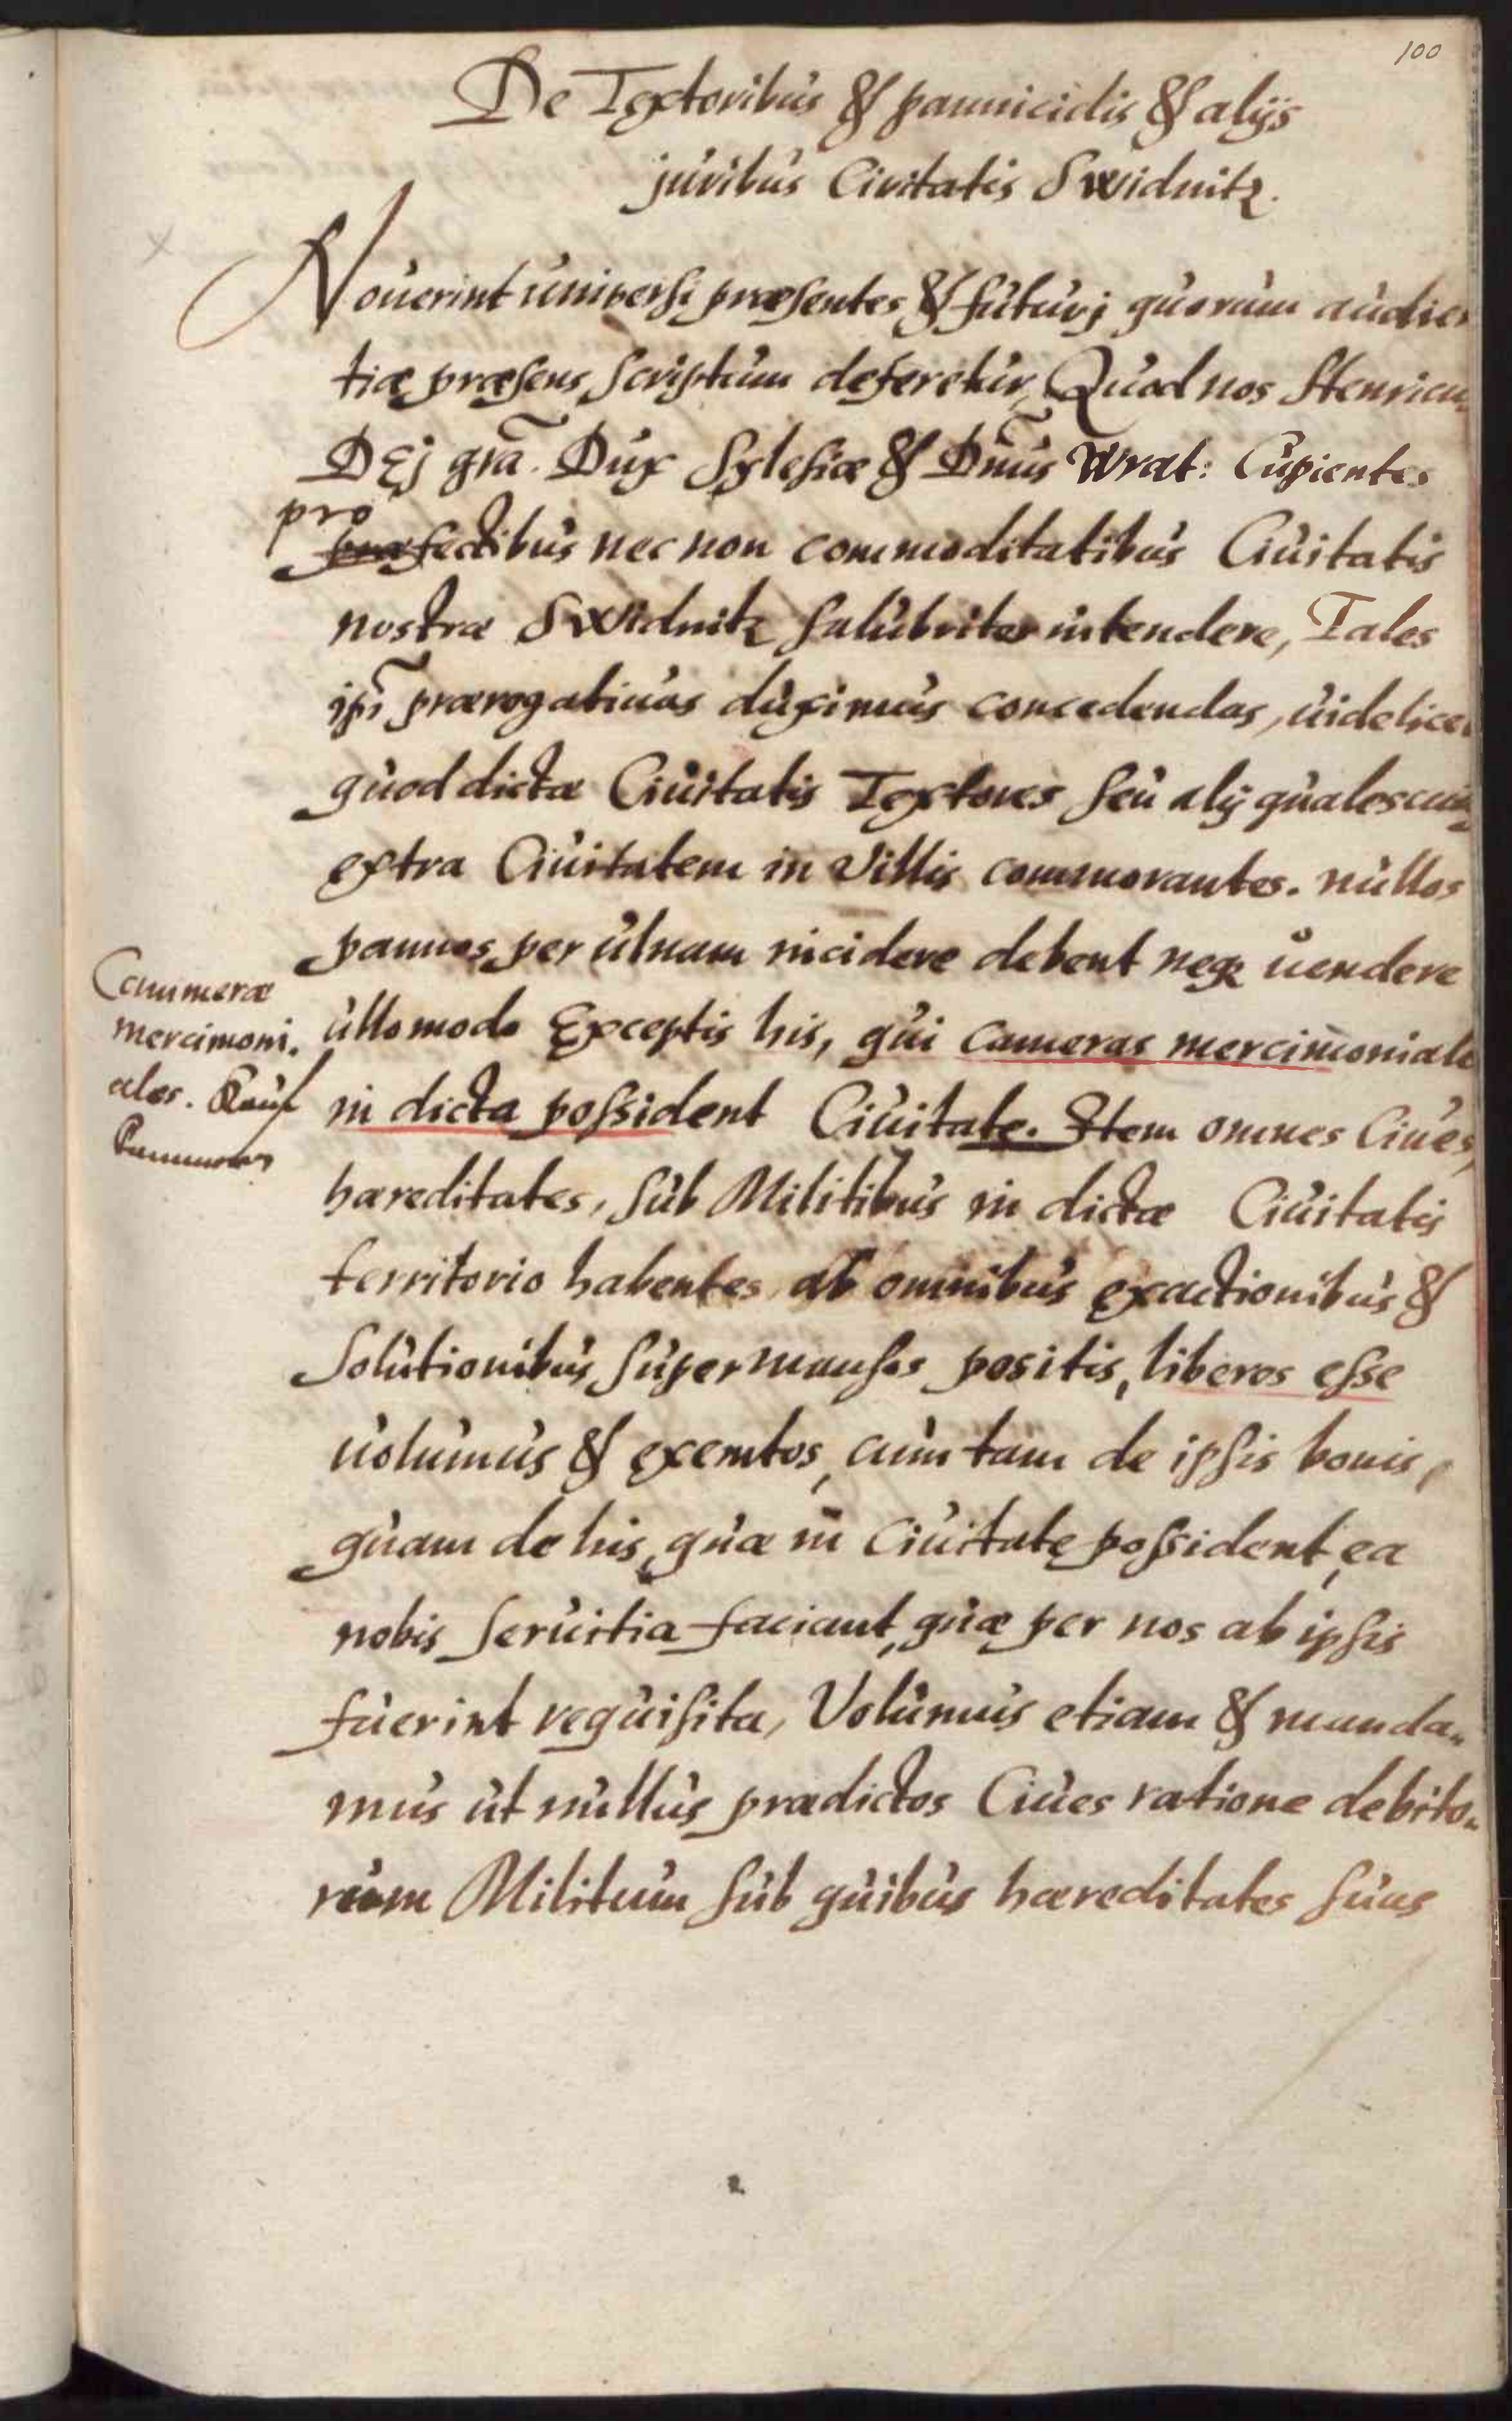 100
De Textoribus & pannicidis & alijs
juribus Civitatis Swidnitz.
Nouerint universi præsentes & futurj quorum audien
tiæ præsens scriptum deferetur, Quod nos Henricus
DEj gra. Dux Sylesiæ & Dnus Wrat: Cupientes
pro
præfectibus nec non commoditatibus Ciuitatis
nostræ Swidnitz salubriter intendere, Tales
ipi prærogatiuas duximus concedendas, uidelicet
quod dictæ Ciuitatis Textores seu alij qualescunq
extra Ciuitatem in Villis commorantes. nullos
pannos per ulnam incidere debent neq uendere
ullo modo Exceptis his, qui cameras mercimoniales
in dicta possident Ciuitate. Item omnes Ciues,
hæreditates, sub Militibus in dictæ Ciuitatis
territorio habentes ab omnibus exactionibus &
solutionibus super mansos positis, liberos esse
uolumus & exemtos, cum tam de ipsis bonis,
quam de his, quæ in Ciuitate possident, ea
nobis seruitia faciant, quæ per nos ab ipsis
fuerint requisita, Volumus etiam & manda-
mus ut nullus prædictos Ciues ratione debito-
rum Militum sub quibus hæreditates suas
Cammeræ
mercimoni-
ales. Kauf
Cammern